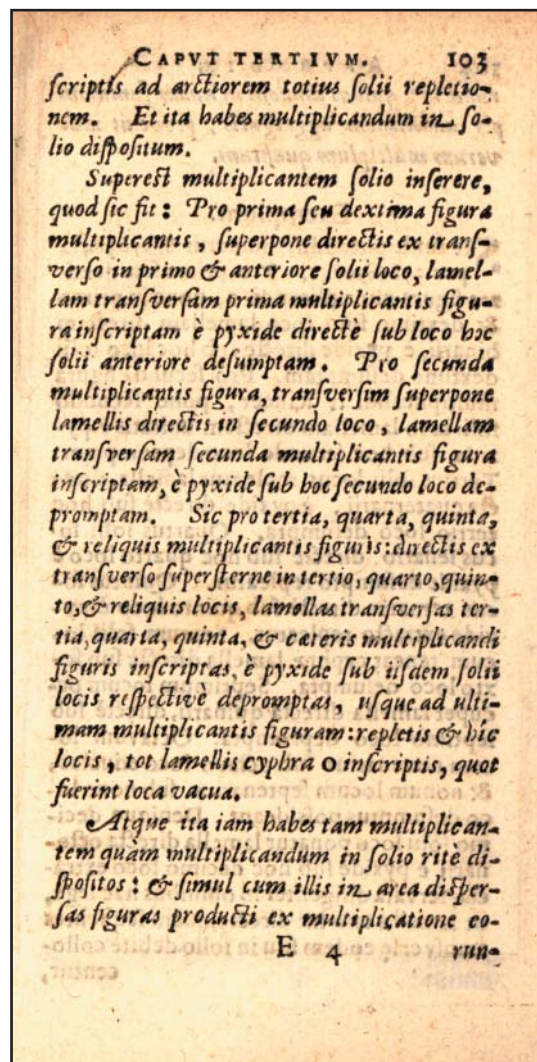 CAPVT TERTIVM. 103
ſcriptis ad arctiorem totius ſolii repletio-
nem. Et ita habes multiplicandum in ſo-
lio diſpoſitum.
Supereſt multiplicantem ſolio inſerere,
quod ſic fit: Pro prima ſeu dextima figura
multiplicantis, ſuperpone directis ex tranſ-
verſo in primo & anteriore ſolii loco, lamel-
lam tranſverſam prima multiplicantis figu-
ra inſcriptam è pyxide directè ſub loco hoc
ſolii anteriore deſumptam. Pro ſecunda
multiplicantis figura, tranſverſim ſuperpone
lamellis directis in ſecundo loco, lamellam
tranſverſam ſecunda multiplicantis figura
inſcriptam, è pyxide ſub hoc ſecundo loco de-
promptam. Sic pro tertia, quarta, quinta,
& reliquis multiplicantis figuris: directis ex
tranſverſo ſuperſterne in tertio, quarto, quin-
to, & reliquis locis, lamellas tranſverſas ter-
tia, quarta, quinta, & cæteris multiplicandi
figuris inſcriptas, è pyxide ſub iiſdem ſolii
locis reſpectivè depromptas, uſque ad ulti-
mam multiplicantis figuram: repletis & hîc
locis, tot lamellis cyphra 0 inſcriptis, quot
fuerint loca vacua.
Atque ita iam habes tam multiplican-
tem quàm multiplicandum in ſolio ritè di-
ſpoſitos: & ſimul cum illis in area diſper-
ſas figuras producti ex multiplicatione eo-
E 4 run-